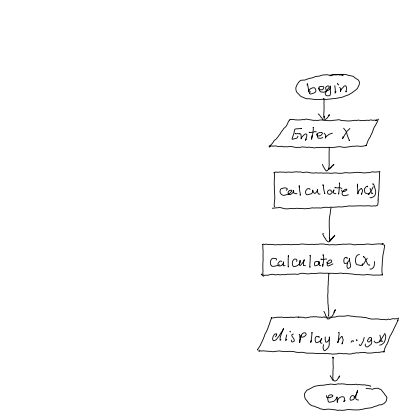 begin
Enter X
calculate h(x)
calculate g(x)
display h ..,g(x)
end